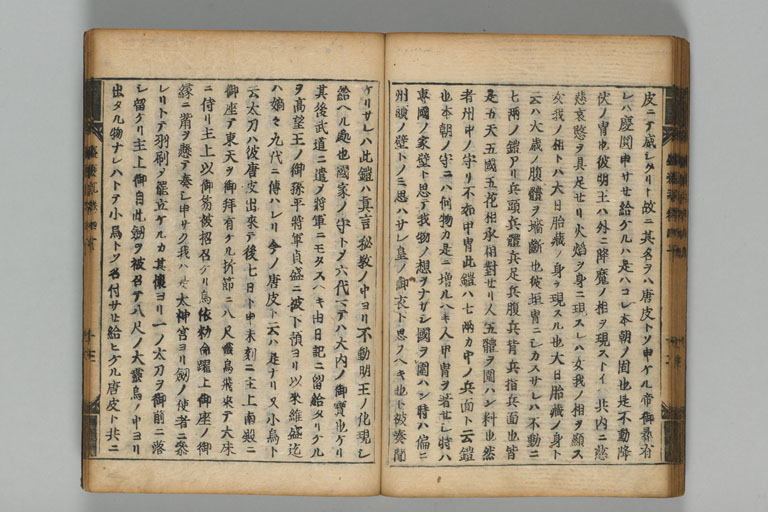 皮ニテ威シタリト故ニ其名ヲハ唐皮トソ申ケル帝御尋有
シハ慶円申サセ給ケルハ是ハコレ本朝ノ固也是不動降
伏ノ冑也彼明王ハ外ニ降魔ノ相ヲ現ストイヘ共内ニ慈
悲哀愍ヲ具足セリ火焔ヲ身ニ現スレハ女我ノ相ヲ顕ス
女我ノ相トハ大日胎蔵ノ身ヲ現スル也大日胎蔵ノ身ト
云ハ大歳ノ腹體ヲ
七両ノ鎧アリ兵頭兵體兵足兵腹兵背兵指兵面也皆
是五天五國五花相承相對セリ人五體ヲ圍ハン料也然
者州中ノ守リ不如甲冑此鎧ハ七両カ中ノ兵面ト云鎧
也本朝ノ守ニハ何物カ是ニ増ルヘキ人甲冑ヲ著セシ時ハ
専國ノ家壁ト思テ我物ノ想ヲナサシ國ヲ圍ハン時ハ偏ニ
州頭ノ壁トノミ思ハサレ皇ノ御衣ト思フヘキ也ト被奏聞
ケリサレハ此鎧ハ真言秘教ノ中ヨリ不動明王ノ化現シ
給ヘル處也國家ノ守トメ六代マテハ大内ノ御寶也ケリ
其後武道ニ遣ノ将軍ニモタスヘキ由日記ニ留給タリケル
ヲ高望王ノ御孫平将軍貞盛ニ被下預ヨリ以来維盛迄
ハ嫡々九代ニ傳ハレリ今ノ唐皮ト云ハ是ナリ又小烏ト
云太刀ハ彼唐皮出来テ後七日ト申未刻ニ主上南殿ニ
御座テ東天ヲ御拜有ケル折節ニ八尺霊烏飛来テ大床
ニ侍リ主上以御笏被招召ケリ烏依勅命躍上御座ノ御
縁ニ觜ヲ懸テ奏シ申サク我ハ是太神宮ヨリ剱ノ使者ニ参
レリトテ羽刷ヲ罷立ケルカ其懐ヨリ一ノ太刀ヲ御前ニ落
シ留ケリ主上御自此剱ヲ被召テ八尺ノ大霊烏ノ中ヨリ
出タル物ナレハトテ小烏トソ名付サセ給ヒケル唐皮ト共ニ